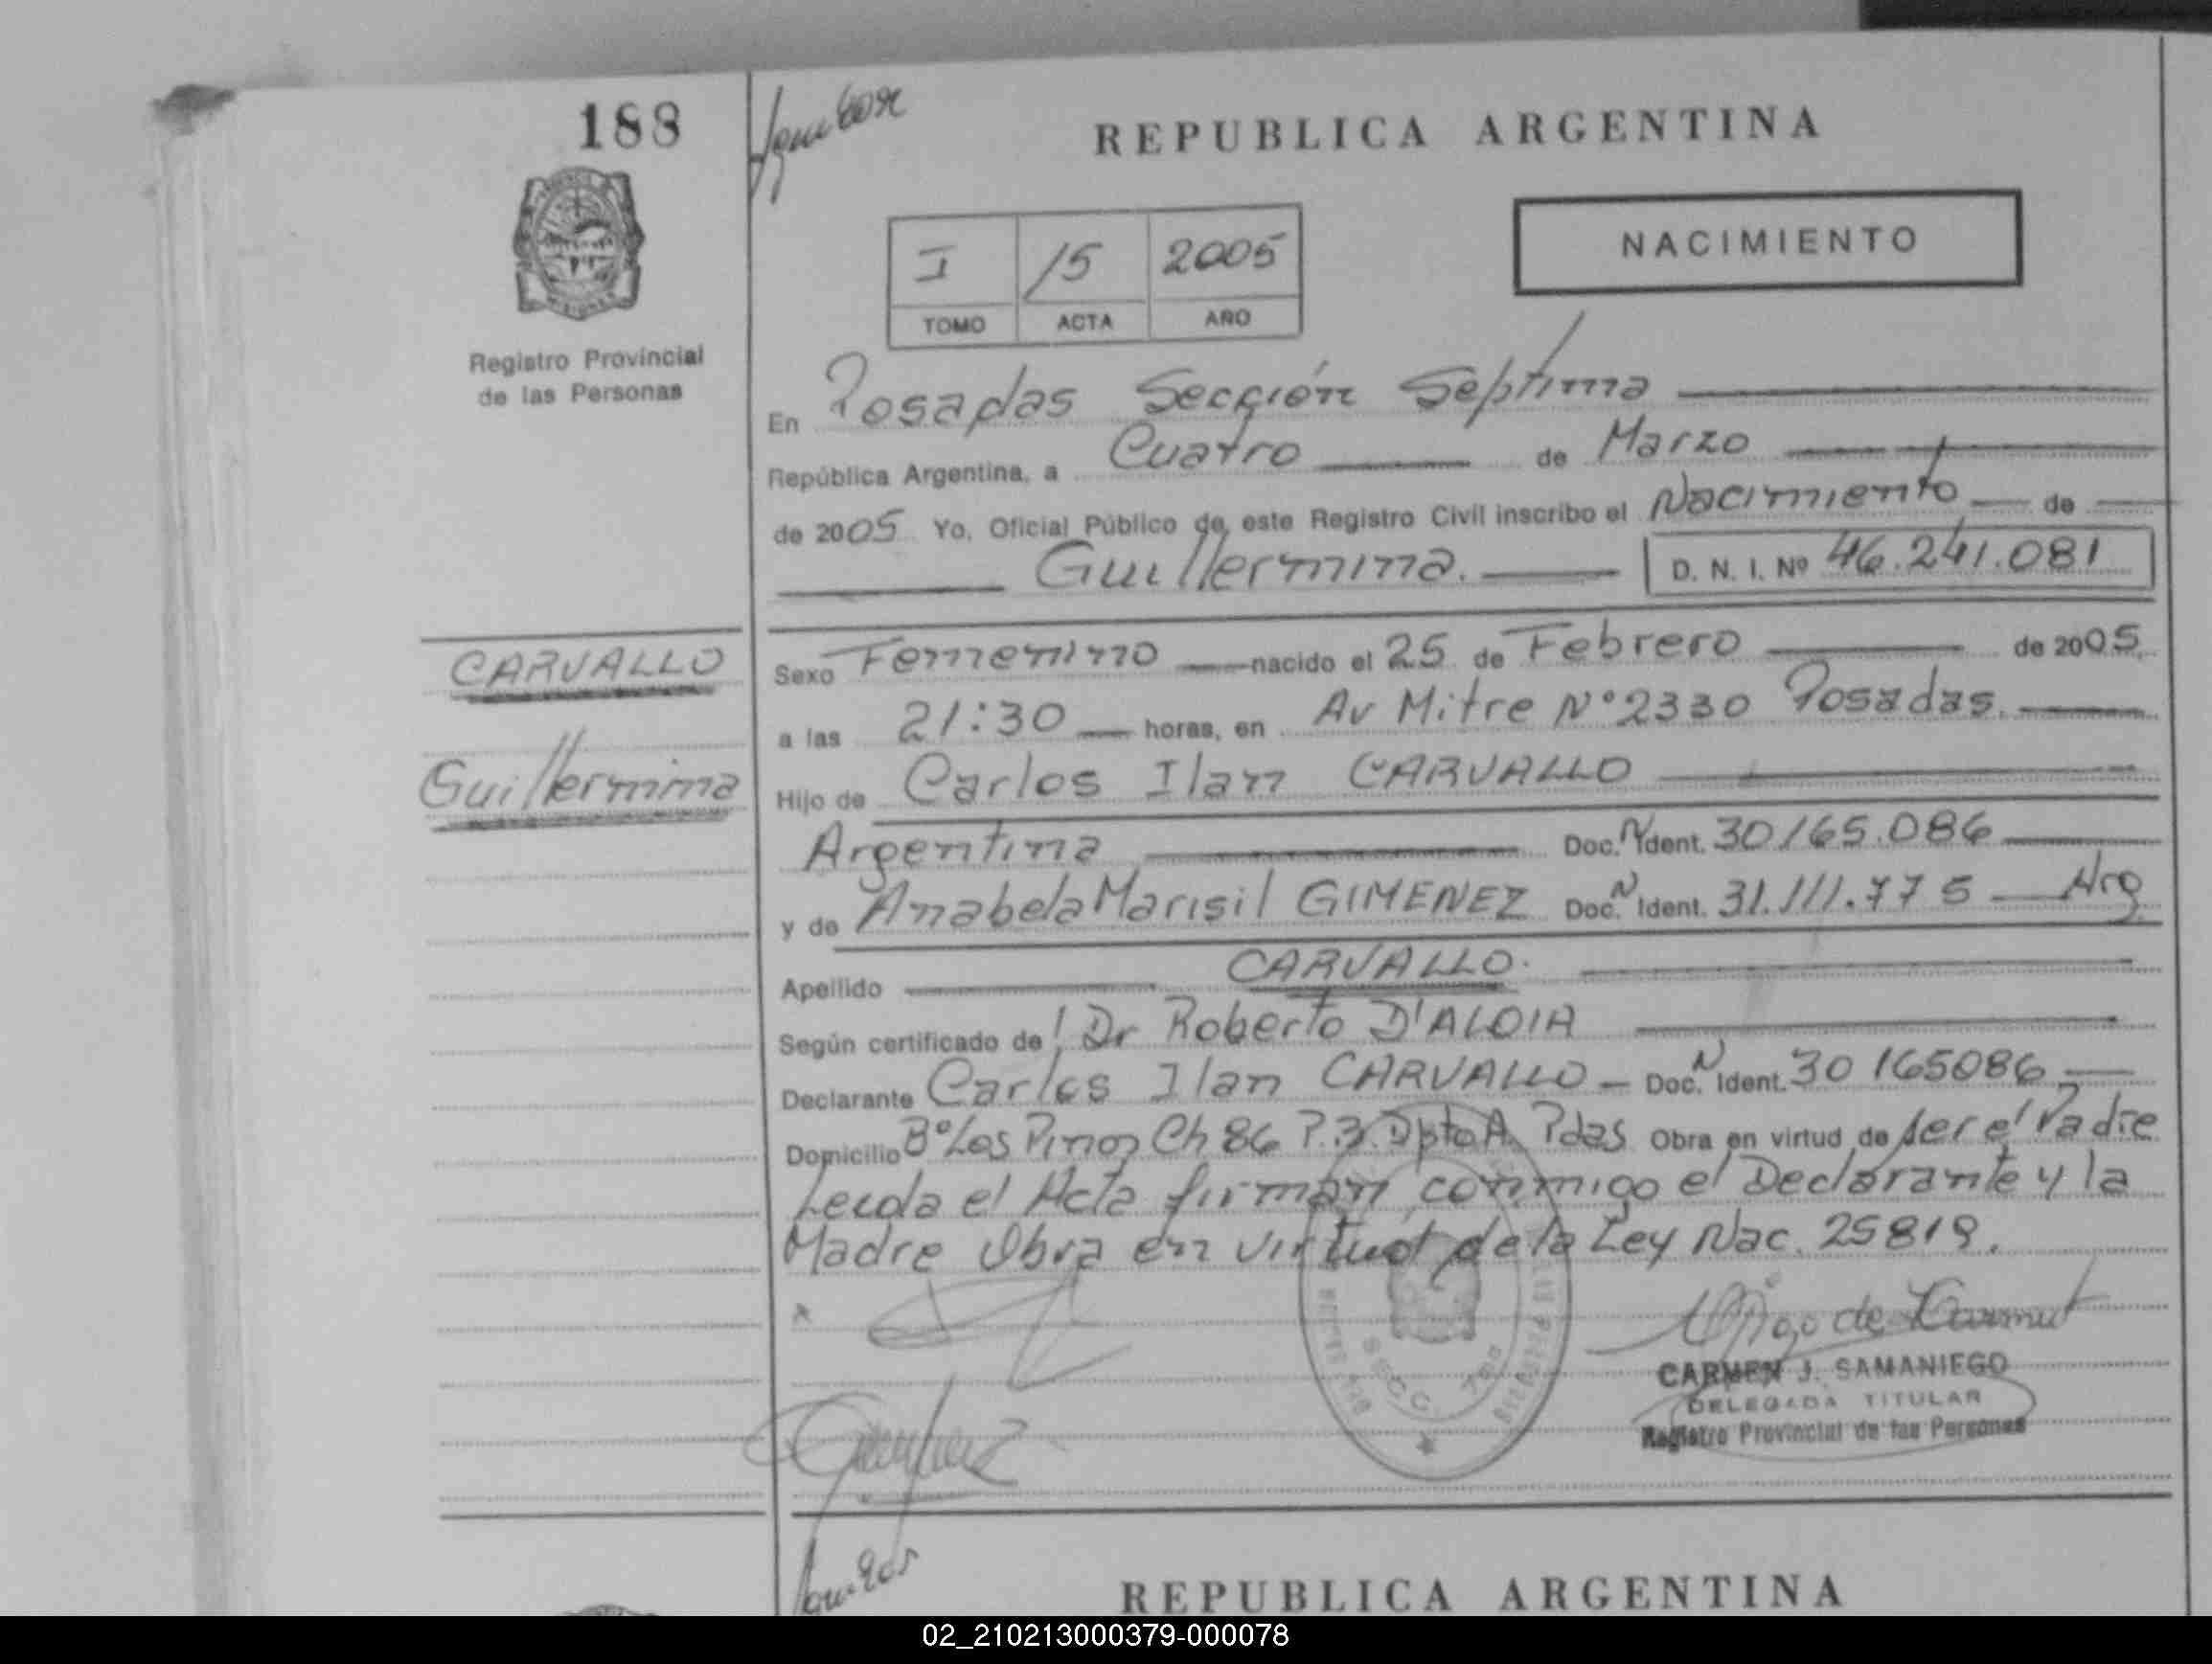 188
REPUBLICA ARGENTINA
NACIMIENTO
I 15 2005
TOMO ACTA AÑO
Registro Provincial
de las Personas
En Posadas Sección Septima
República Argentina, a Cuatro de Marzo
de 2005 Yo, Oficial Público de este Registro Civil inscribo el Nacimiento de
Guillermina. D. N. I. Nº 46.241.081
CARVALLO
Guillermina
Sexo Femenino nacido el 25 de Febrero de 2005
a las 21:30 horas, en Av Mitre Nº 2330 Posadas.
Hijo de Carlos Ilan CARVALLO
Argentina Doc. N Ident. 30165.086
y de Anabela Marisil GIMENEZ Doc. N Ident. 31.111.775 Arg
Apellido CARVALLO.
Según certificado de Dr Roberto D'ALOIA
Declarante Carlos Ilan CARVALLO Doc. N Ident. 30 165086
Domicilio Bº Los Pinos Ch 86 P.3. Dpto A. Pdas Obra en virtud de ser el Padre
Leida el Acta firman conmigo el Declarante y la
Madre Obra en virtud de la Ley Nac. 25819.
SECC. 7ma
CARMEN J. SAMANIEGO
DELEGADA TITULAR
Registro Provincial de las Personas
REPUBLICA ARGENTINA
02_210213000379-000078